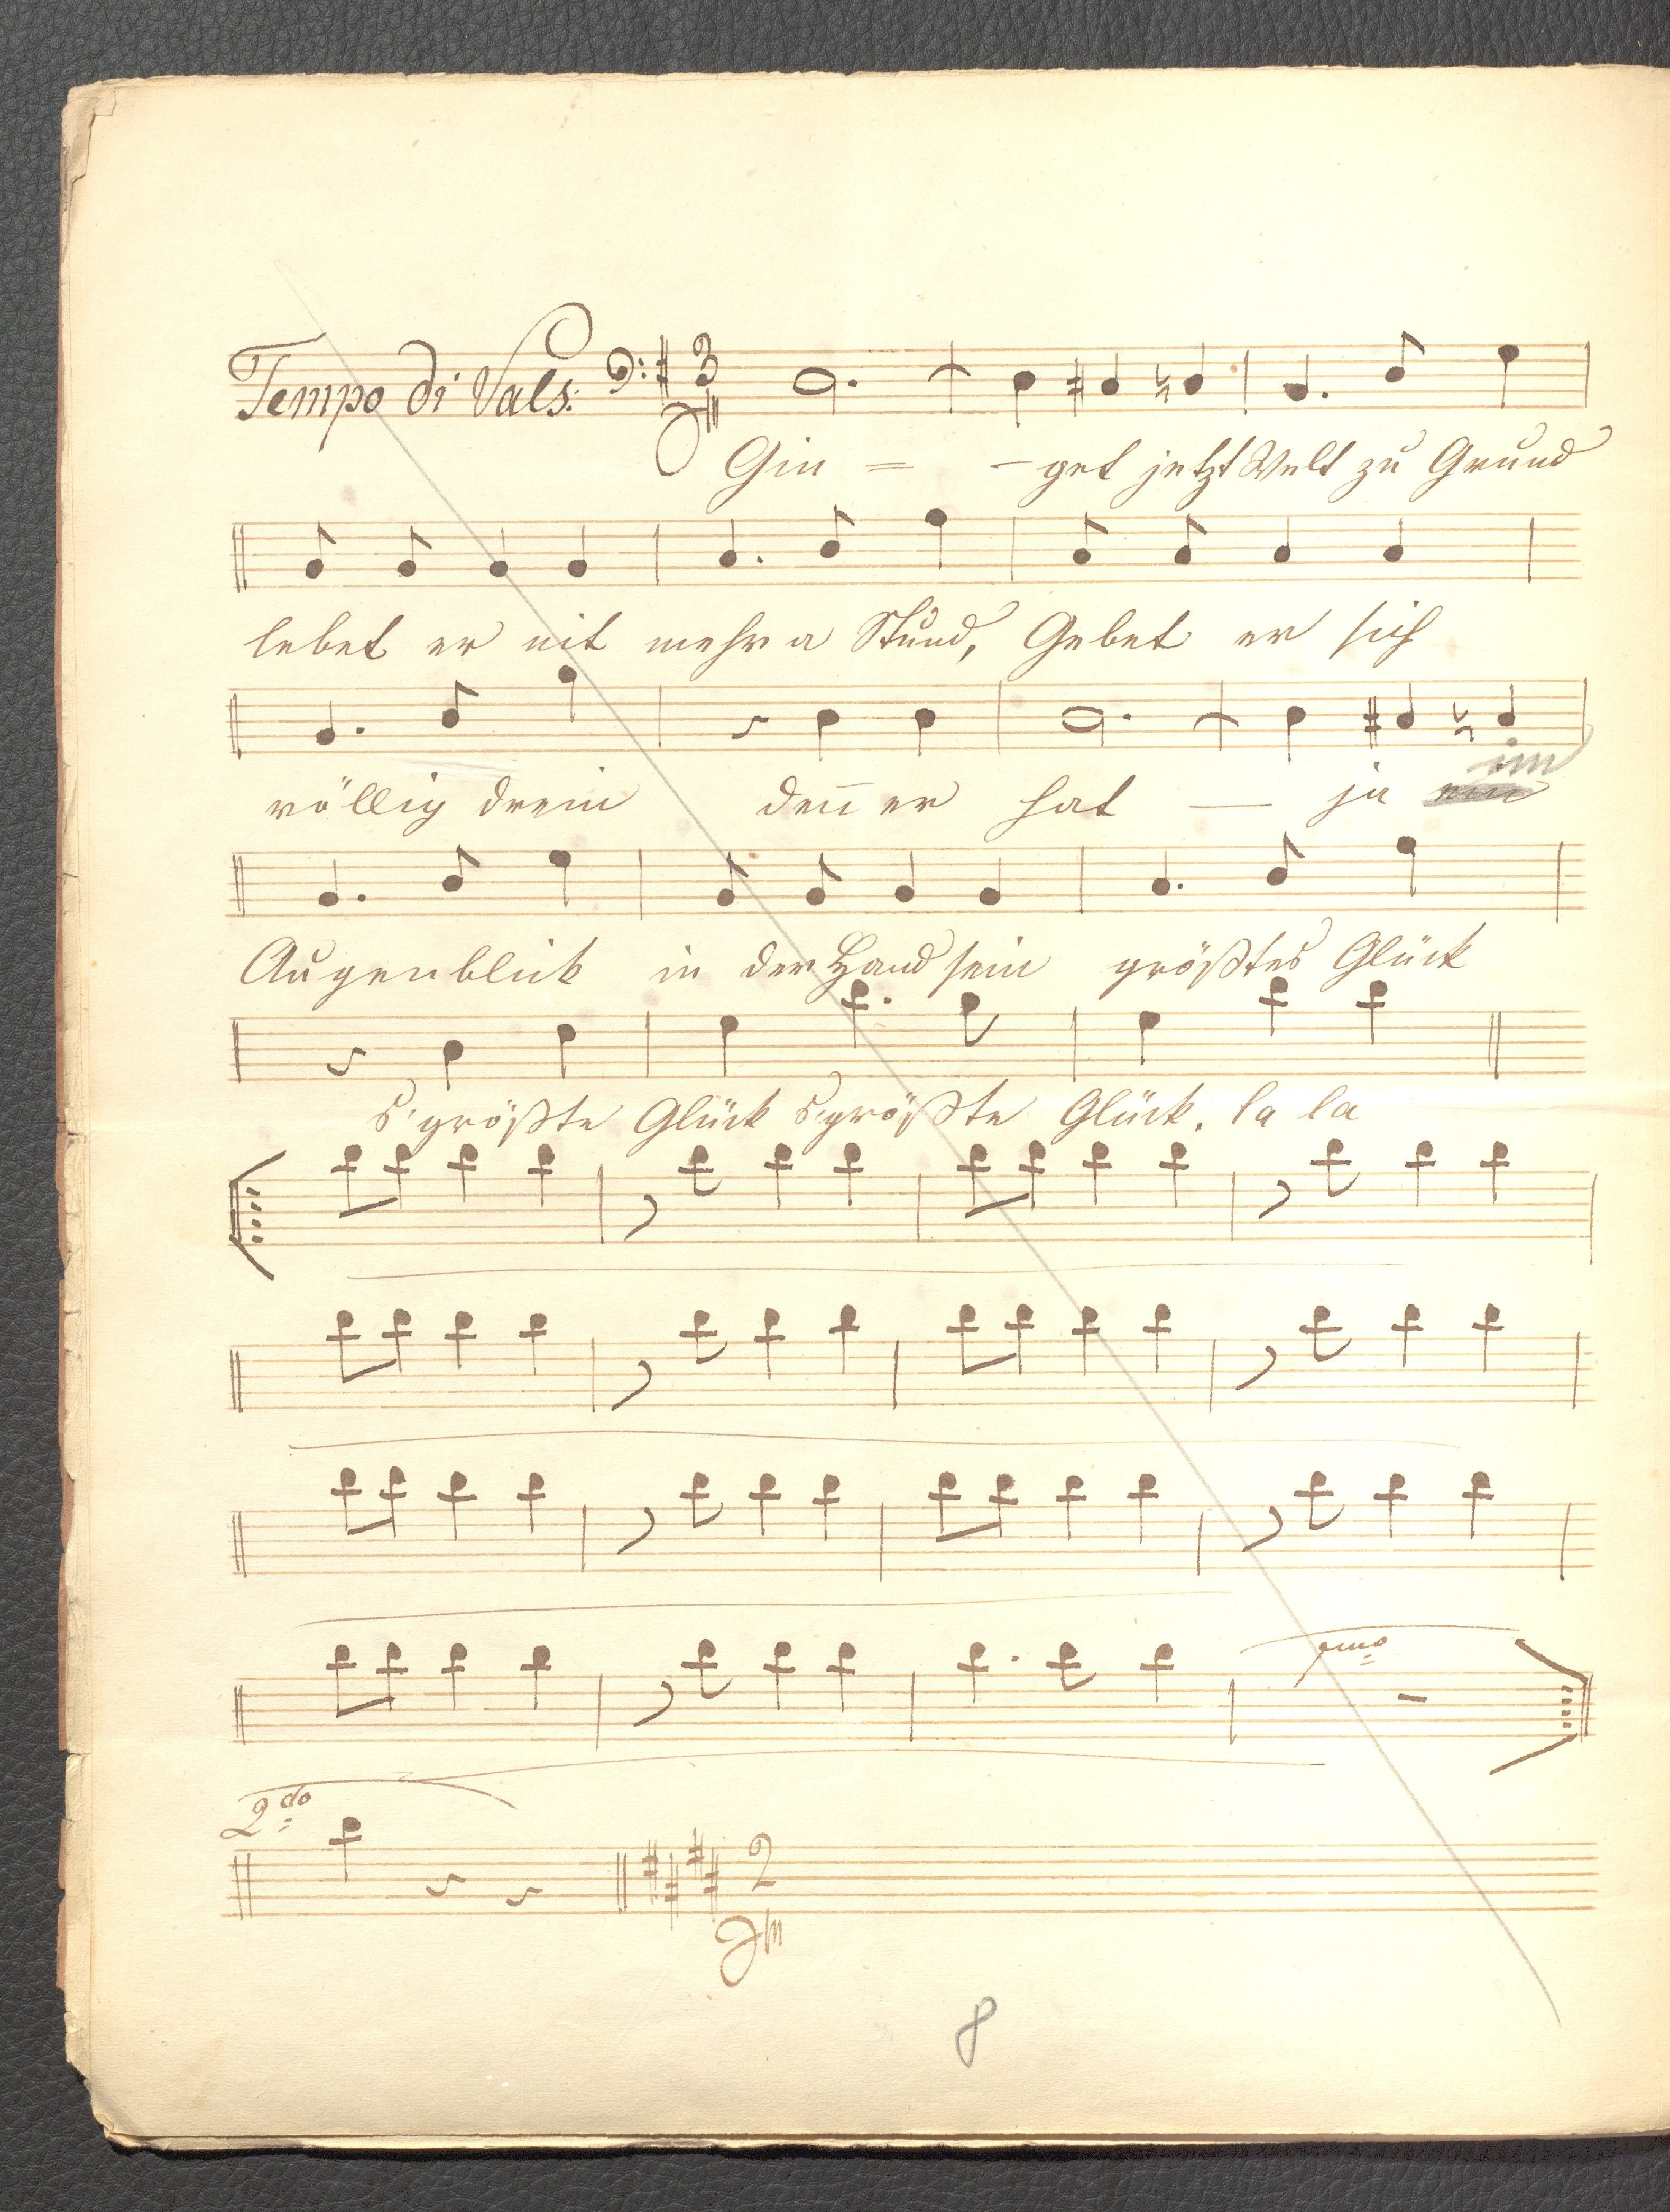 Tempo di Vals: 3/4
Gin = - get jetzt Welt zu Grund
lebet er nit mehr a Stund, Gebet er sich
völlig drein deñ er hat — ja im
Augenblick in der Hand sein größtes Glück
s'größte Glück s'größte Glück. la la
1mo
2do
2/4
8